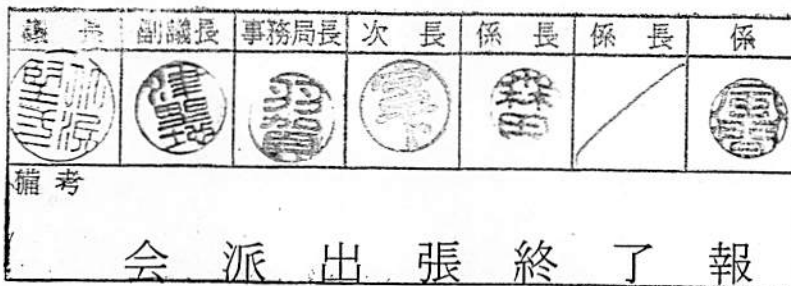 議長 副議長 事務局長 次長 係長 係長 係
森田
備考
会派出張終了報